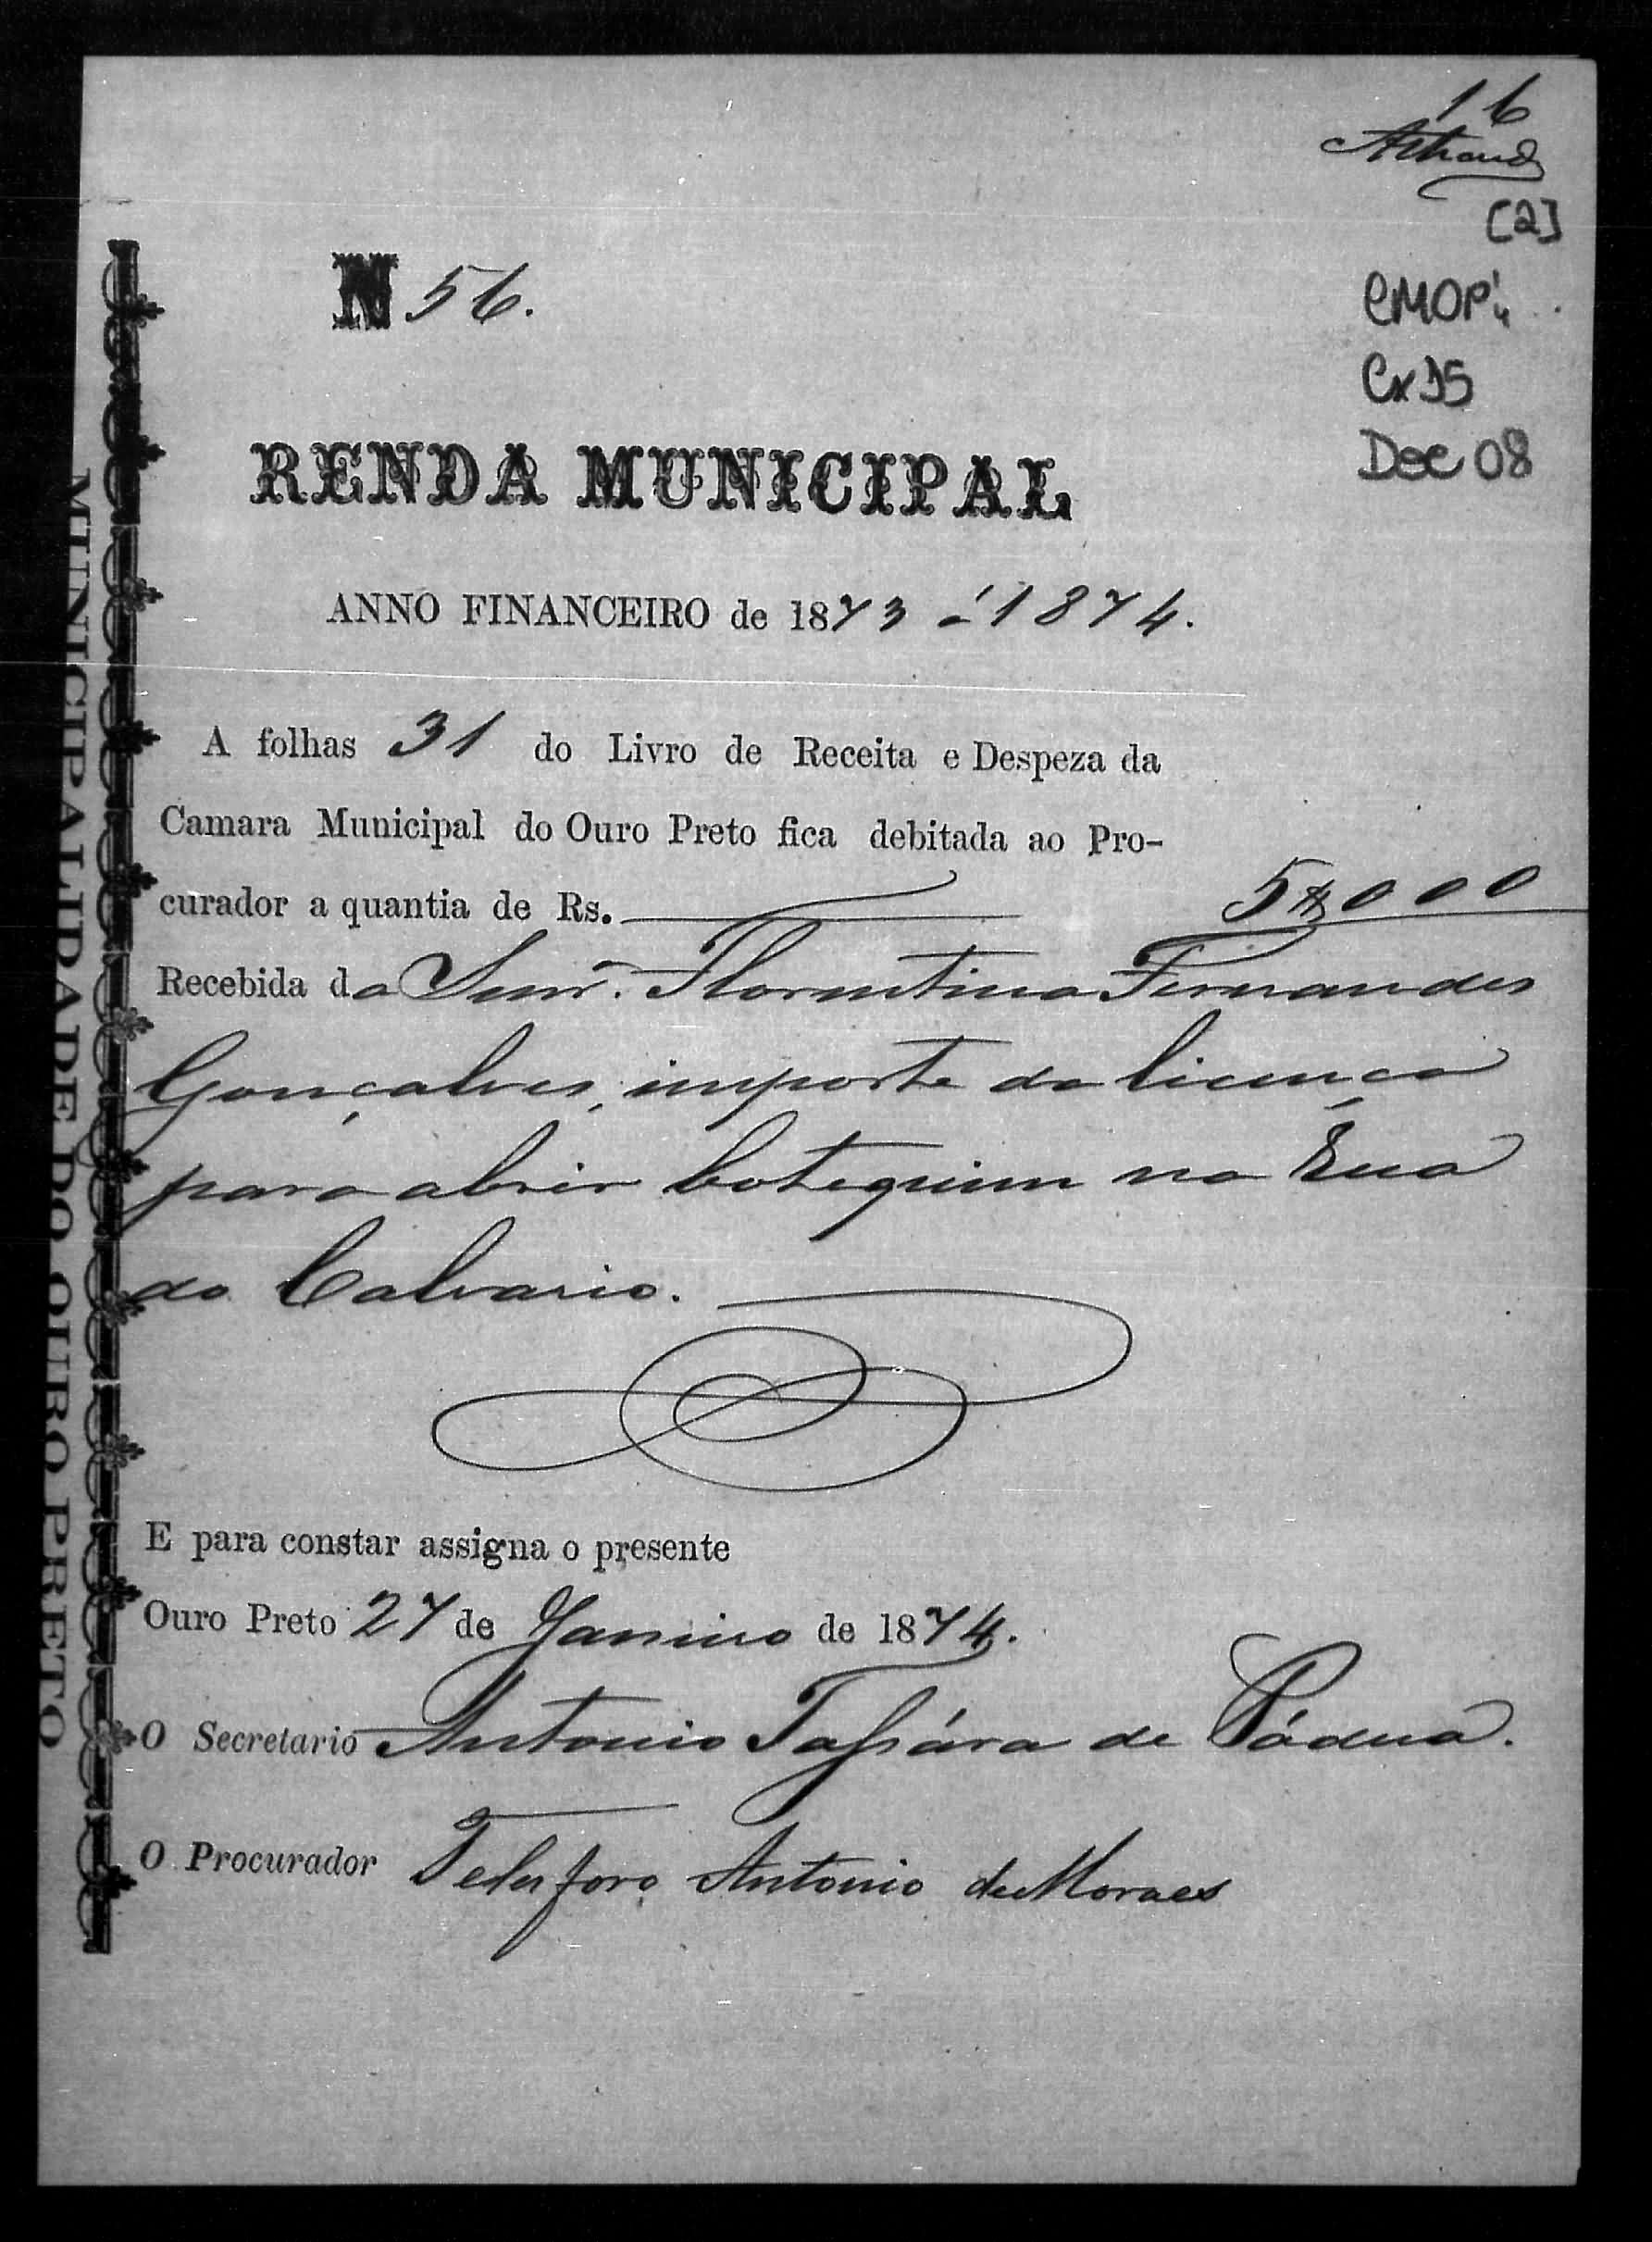 16
[2]
CMOP
Cx 35
Doc 08
N 56.
RENDA MUNICIPAL
ANNO FINANCEIRO de 1873 á 1874.
A folhas 31 do Livro de Receita e Despeza da
Camara Municipal do Ouro Preto fica debitada ao Pro-
curador a quantia de Rs. 5$000
Recebida do Senr. Florentino Fernandes
Gonçalves, importe da licença
para abrir botequim na Rua
do Calvario.
E para constar assigna o presente
Ouro Preto 27 de Janeiro de 1874.
O Secretario Antonio Tassára de Pádua.
O Procurador Telesforo Antonio de Moraes
MUNICIPALIDADE DO OURO PRETO